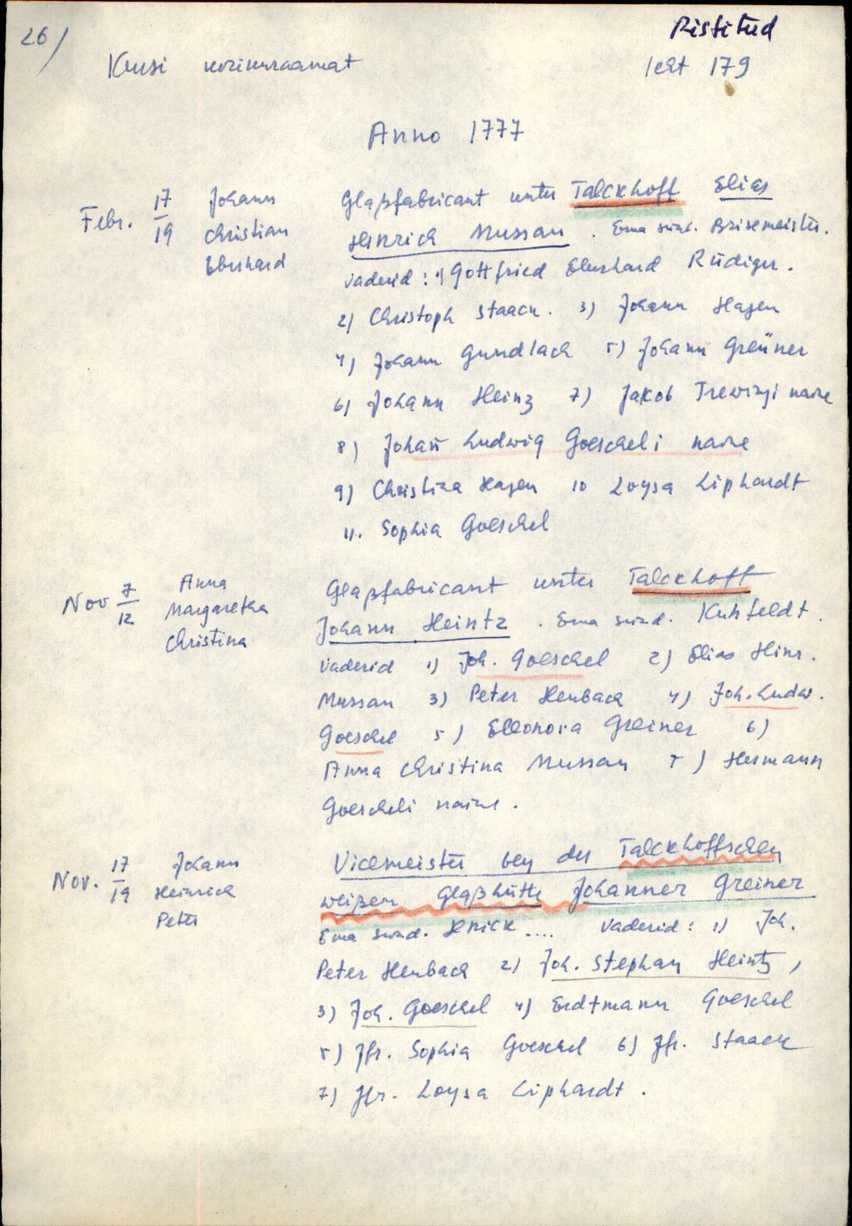 26)
Ristitud
Kursi kirikuraamat leht 179
Anno 1777
Febr. 17/19 Johann Christian Eberhard
Glaßfabricant unter Talckhoff Elias
Heinrich Mussan. Ema sünd. Brisemeister.
Vaderid: 1) Gottfried Eberhard Rüdiger.
2) Christoph Staack. 3) Johann Hagen
4) Johann Gundlach 5) Johann Greüner
6) Johann Heinz 7) Jakob Trewingi naine
8) Johañ Ludwig Goescheli naine
9) Christina Hagen 10 Loysa Liphardt
11. Sophia Goeschel
Nov 7/12 Anna Margaretha Christina
Glaßfabricant unter Talckhoff
Johann Heintz. Ema sünd. Kuhfeldt.
Vaderid 1) Joh. Goeschel 2) Elias Hinr.
Mussan 3) Peter Heubach 4) Joh. Ludw.
Goeschel 5) Elleonora Greiner 6)
Anna Christina Mussan 7) Hermann
Goescheli naine.
Nov. 17/19 Johann Heinrich Peter
Vicemeister bey der Talckhoffschen
weißen Glaßhütte Johanner Greiner
Ema sünd. Knick.... Vaderid: 1) Joh.
Peter Heubach 2) Joh. Stephan Heintz,
3) Joh. Goeschel 4) Erdtmann Goeschel
5) Jfr. Sophia Goeschel 6) Jfr. Staack
7) Jfr. Loysa Liphardt.